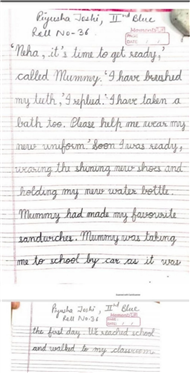 Piyusha Joshi, IInd Blue
Roll No-36
'Neha, it's time to get ready,'
called Mummy. 'I have brushed
my teeth,' I replied. 'I have taken a
bath too. Please help me wear my
new uniform.' Soon I was ready,
wearing the shining new shoes and
holding my new water bottle.
Mummy had made my favourite
sandwiches. Mummy was taking
me to school by car as it was
Piyusha Joshi, IInd Blue
Roll No-36
the first day. We reached school
and walked to my classroom.